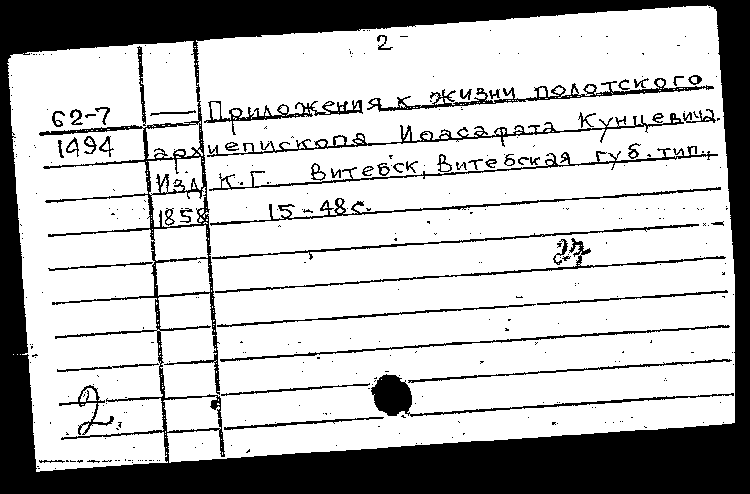 2 -
62-7 — Приложения к жизни полотского
1494 архиепископа Иоасафата Кунцевича.
Изд. К.Г. Витебск, Витебская губ. тип.,
1858 15-48 с.
2.